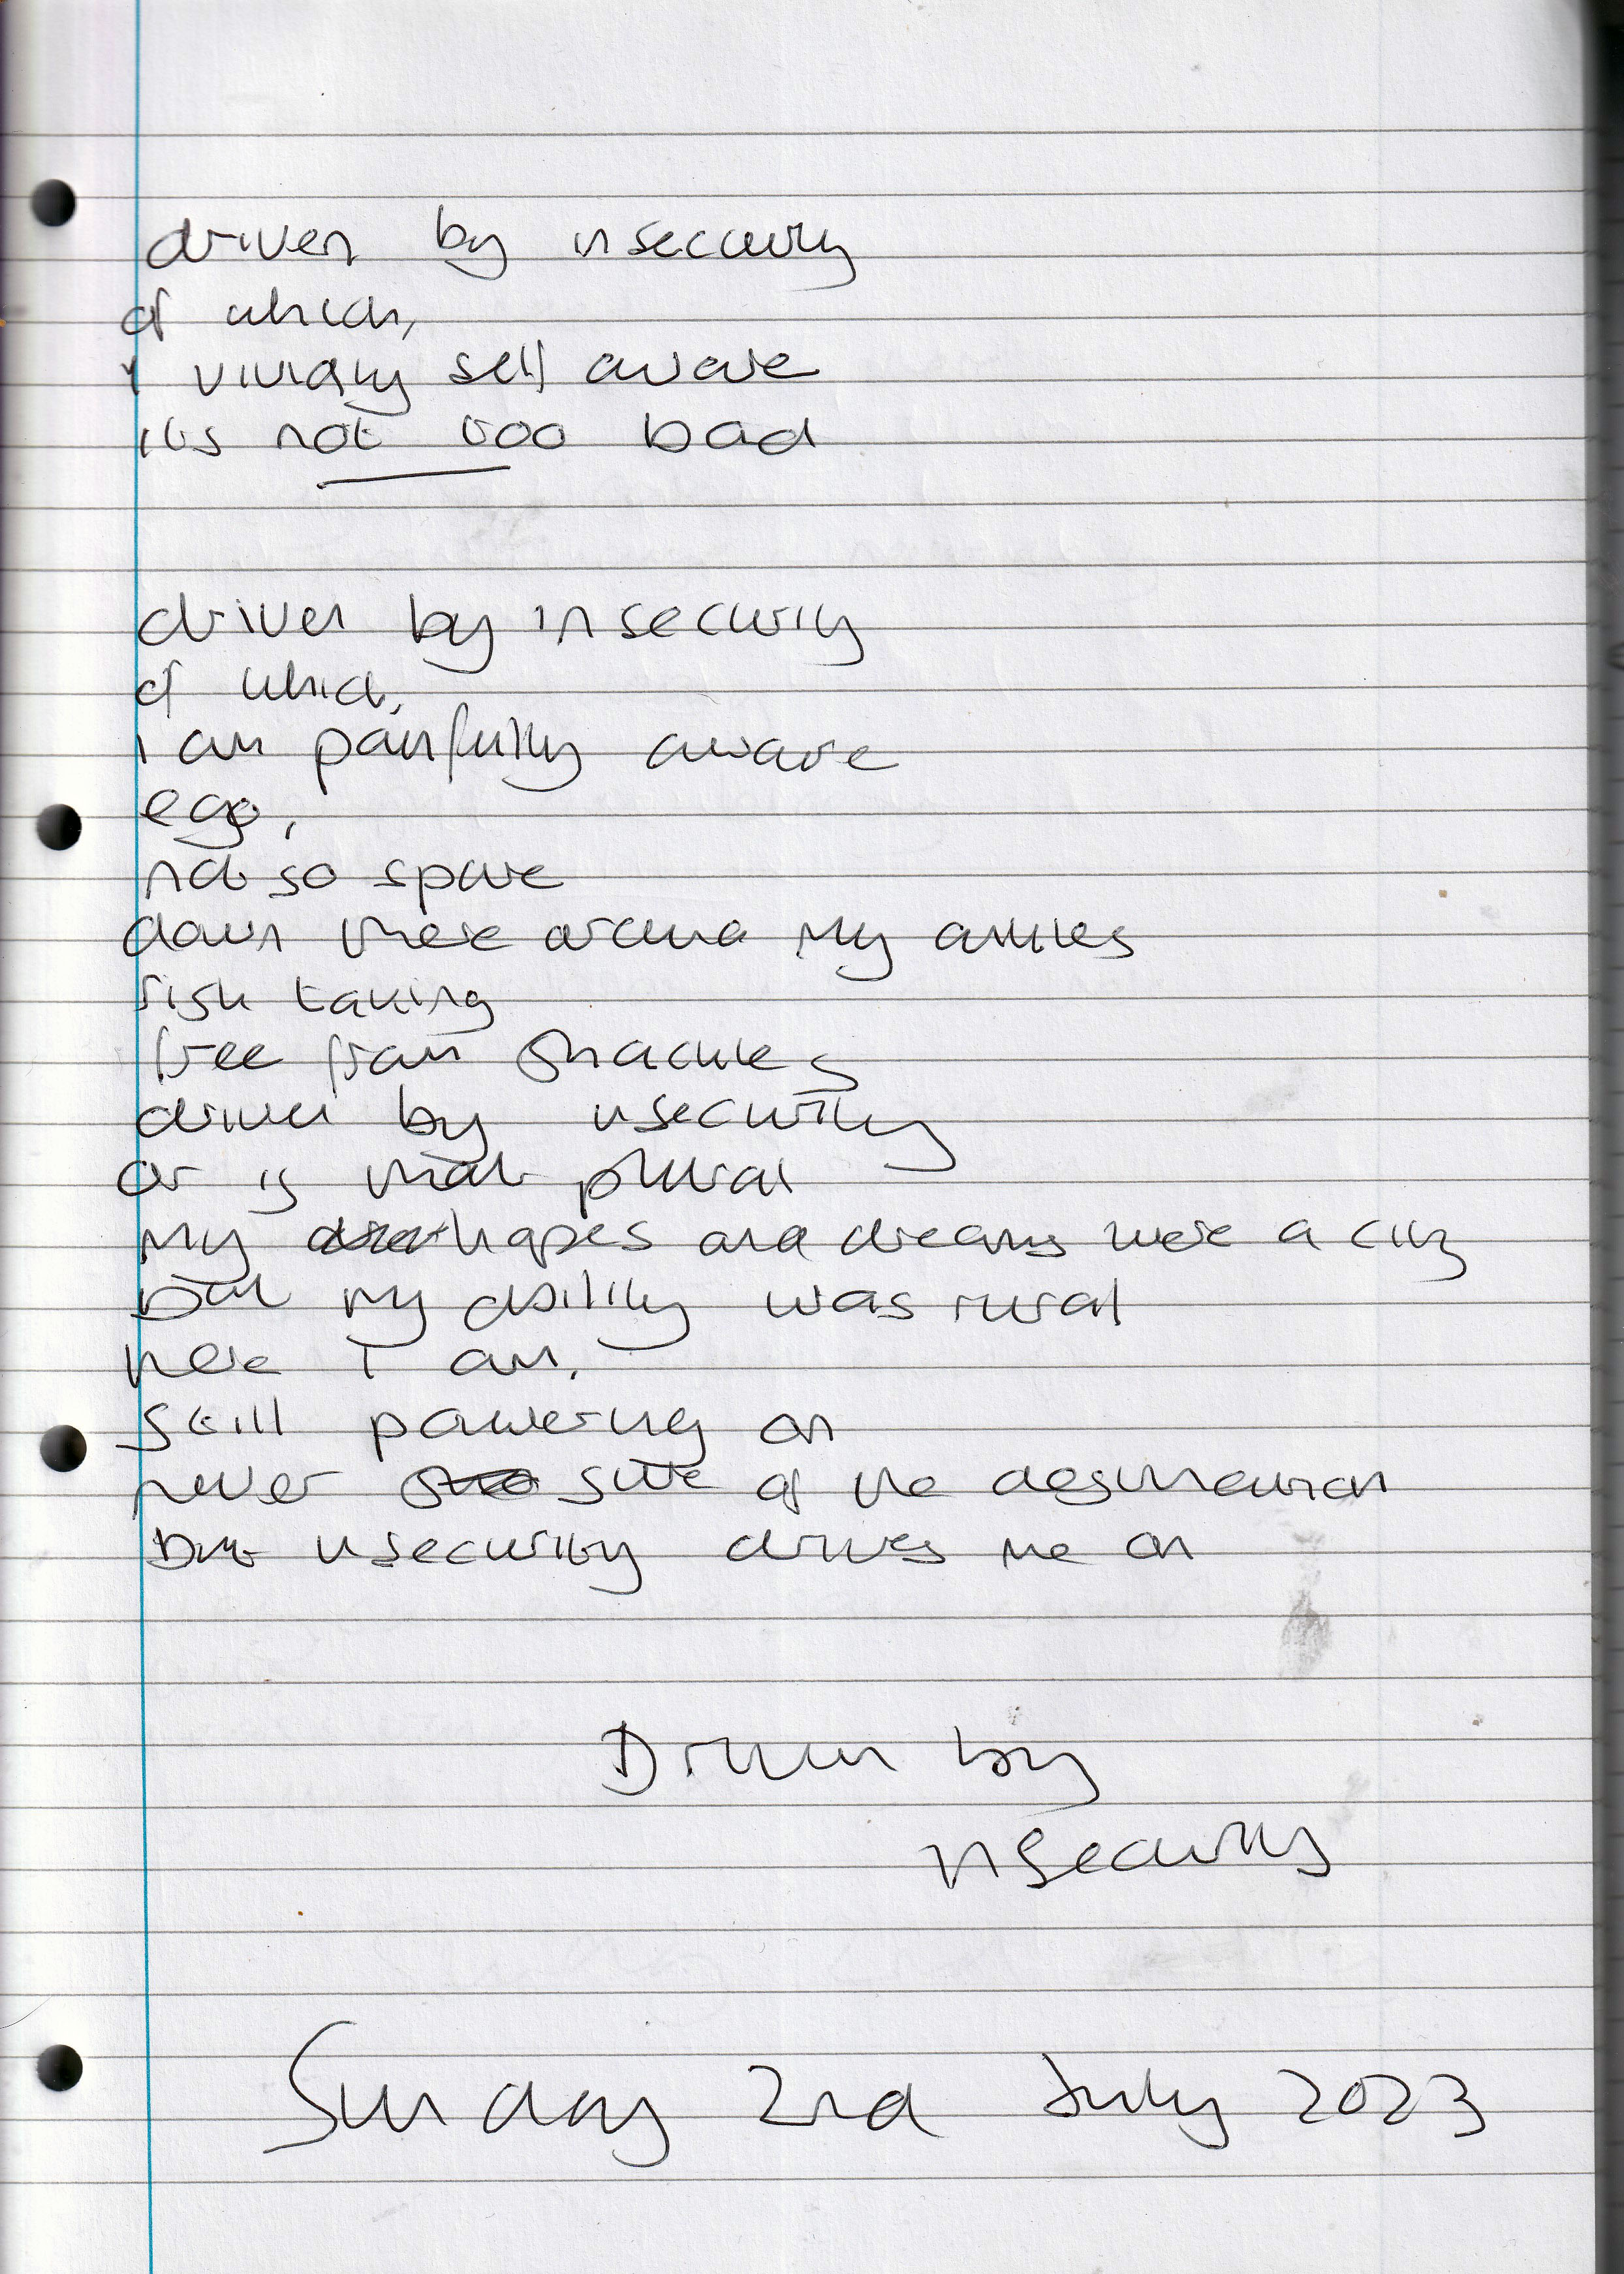 driven by insecurity
of which,
vividly self aware
its not too bad
driven by insecurity
of which,
I am painfully aware
ego,
not so spare
down there around my ankles
risk taking
free from shackles
driven by insecurity
or is that plural
My hopes and dreams were a city
but my ability was rural
here I am,
still powering on
never sure of the destination
but insecurity drives me on
Driven by
insecurity
Sunday 2nd July 2023